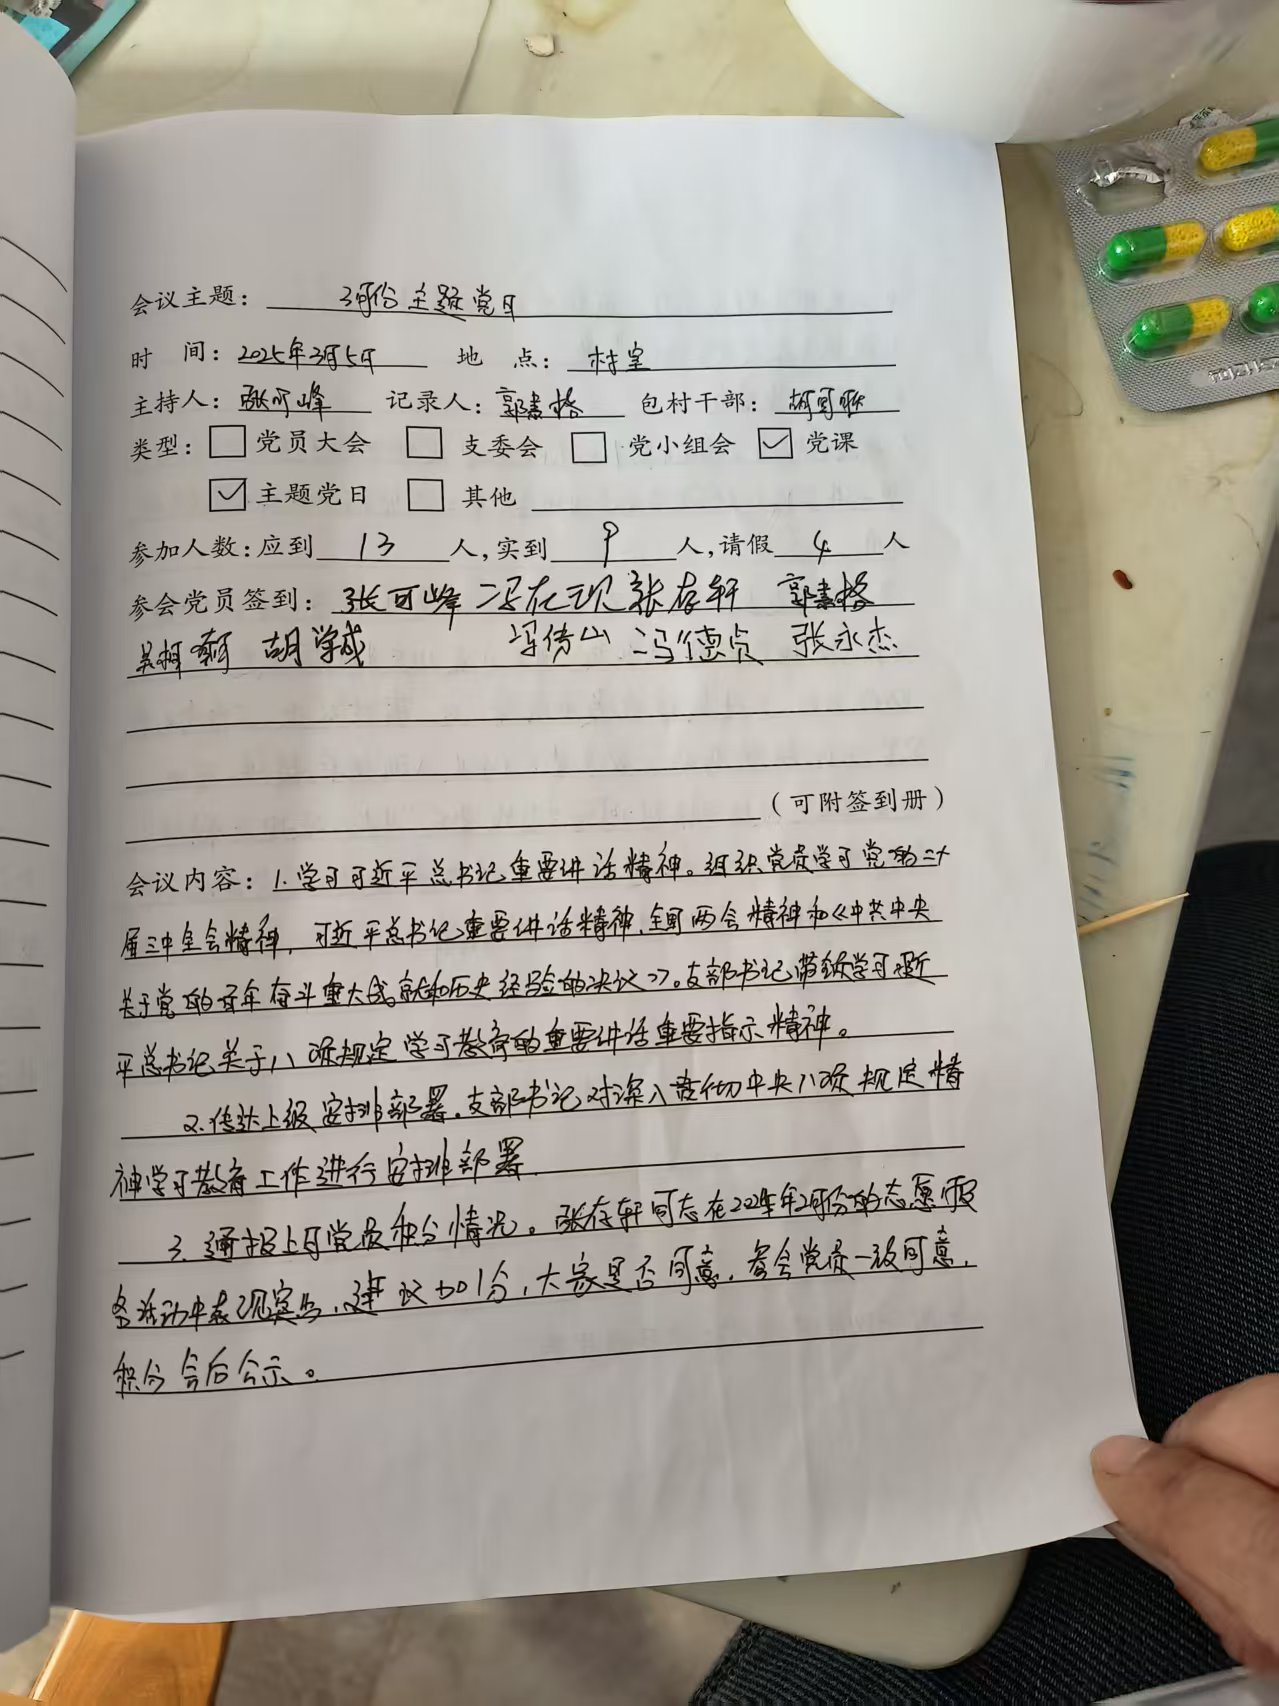 会议主题：3月份主题党日
时 间：2025年3月5日 地 点：村室
主持人：张可峰 记录人：郭素格 包村干部：胡
类型：□党员大会 □支委会 □党小组会 ☑党课
☑主题党日 □其他
参加人数：应到13人，实到9人，请假4人
参会党员签到：张可峰 冯在现 张存轩 郭素格
吴柯 胡学成 冯传山 冯德贞 张永杰
（可附签到册）
会议内容：1.学习习近平总书记重要讲话精神。组织党员学习党的二十
届三中全会精神，习近平总书记重要讲话精神、全国两会精神和《中共中央
关于党的百年奋斗重大成就和历史经验的决议》。支部书记带领学习习近
平总书记关于八项规定学习教育的重要讲话重要指示精神。
2.传达上级安排部署。支部书记对深入贯彻中央八项规定精
神学习教育工作进行安排部署.
3.通报上月党员积分情况。张存轩同志在2025年2月份的志愿服
务活动中表现突出，建议加1分，大家是否同意，参会党员一致同意，
积分会后公示。